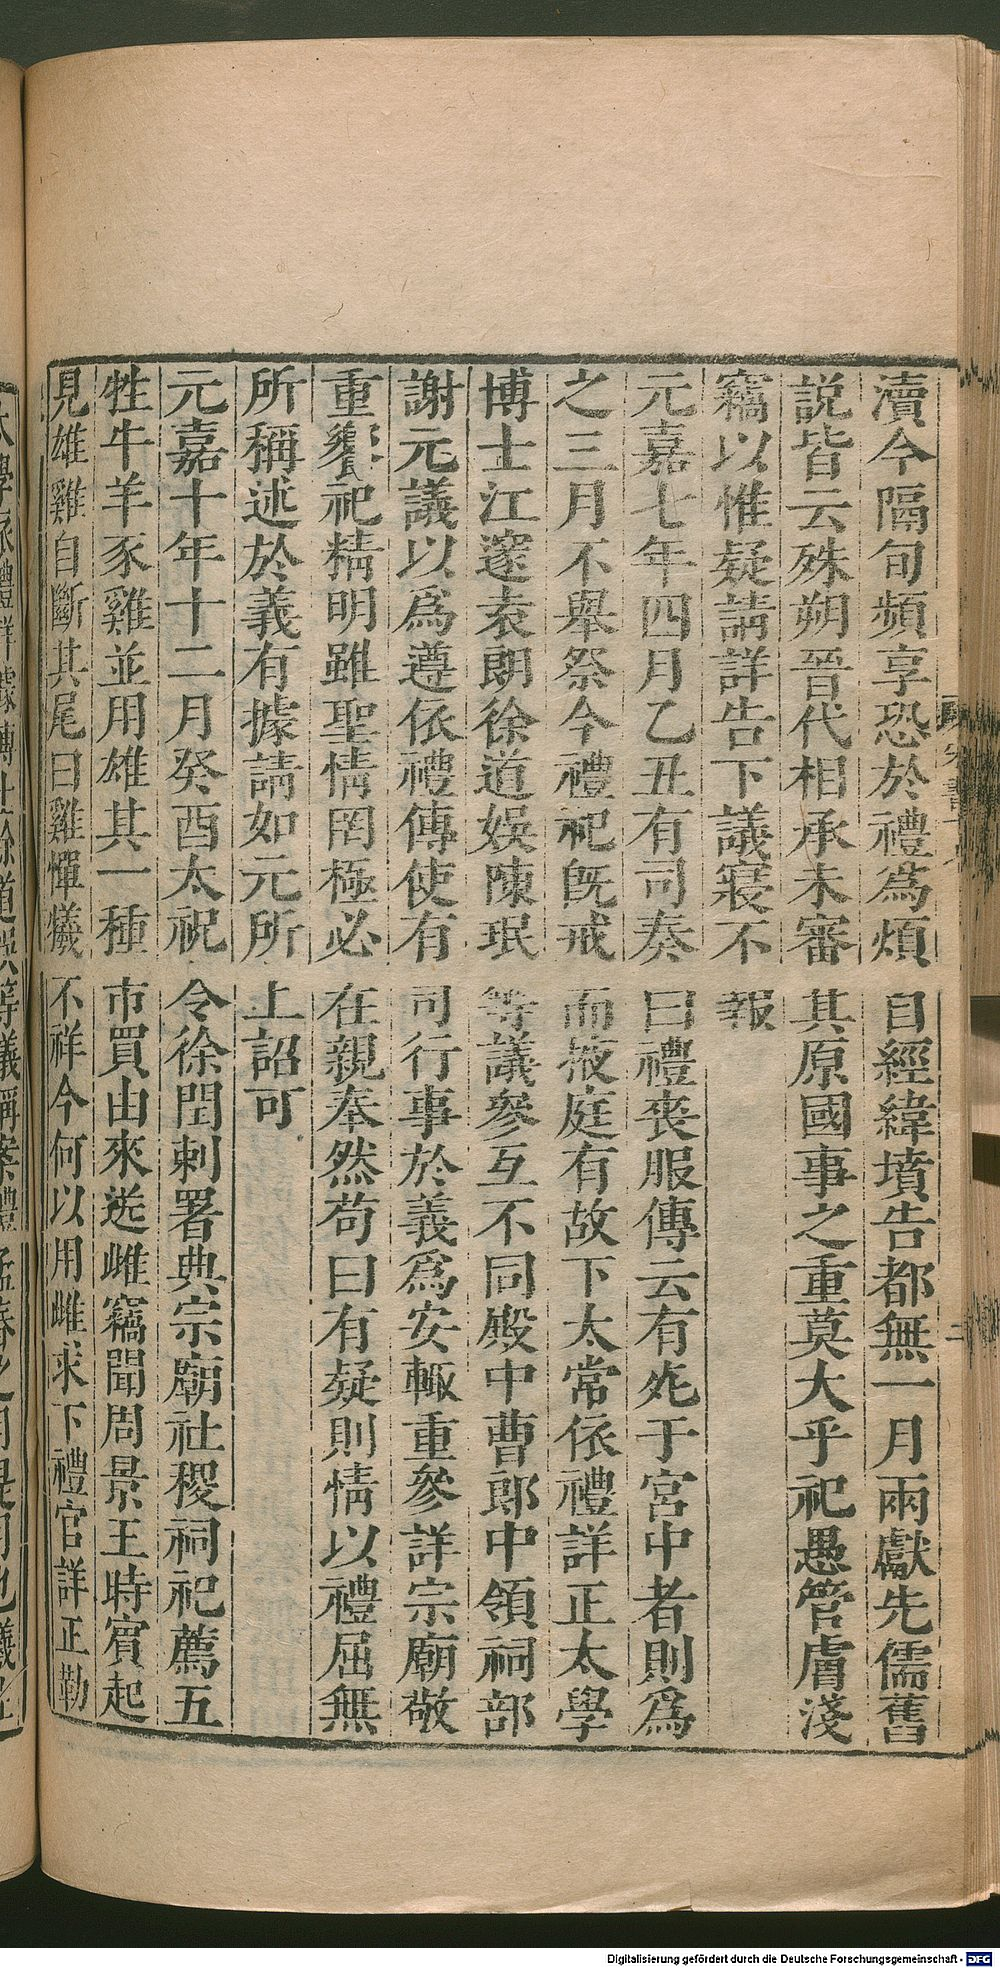 瀆今隔旬頻享恐於禮爲煩自經緯墳告都無一月兩獻先儒舊
説皆云殊朔晉代相承未審其原國事之重莫大乎祀愚管膚淺
竊以惟疑請詳告下議寑不報
元嘉七年四月乙丑有司奏曰禮喪服傳云有死于宮中者則爲
之三月不舉祭今禮祀旣戒而掖庭有故下太常依禮詳正太學
博士江邃袁朗徐道娛陳珉等議參互不同殿中曹郎中領祠部
謝元議以爲遵依禮傳使有司行事於義爲安輒重參詳宗廟敬
重饗祀精明雖聖情罔極必在親奉然苟曰有疑則情以禮屈無
所稱述於義有據請如元所上詔可
元嘉十年十二月癸酉太祝令徐閏刺署典宗廟社稷祠祀薦五
牲牛羊豕雞並用雄其一種市買由來送雌竊聞周景王時賓起
見雄雞自斷其尾曰雞憚犧不祥今何以用雌求下禮官詳正勒
Digitalisierung gefördert durch die Deutsche Forschungsgemeinschaft - DFG